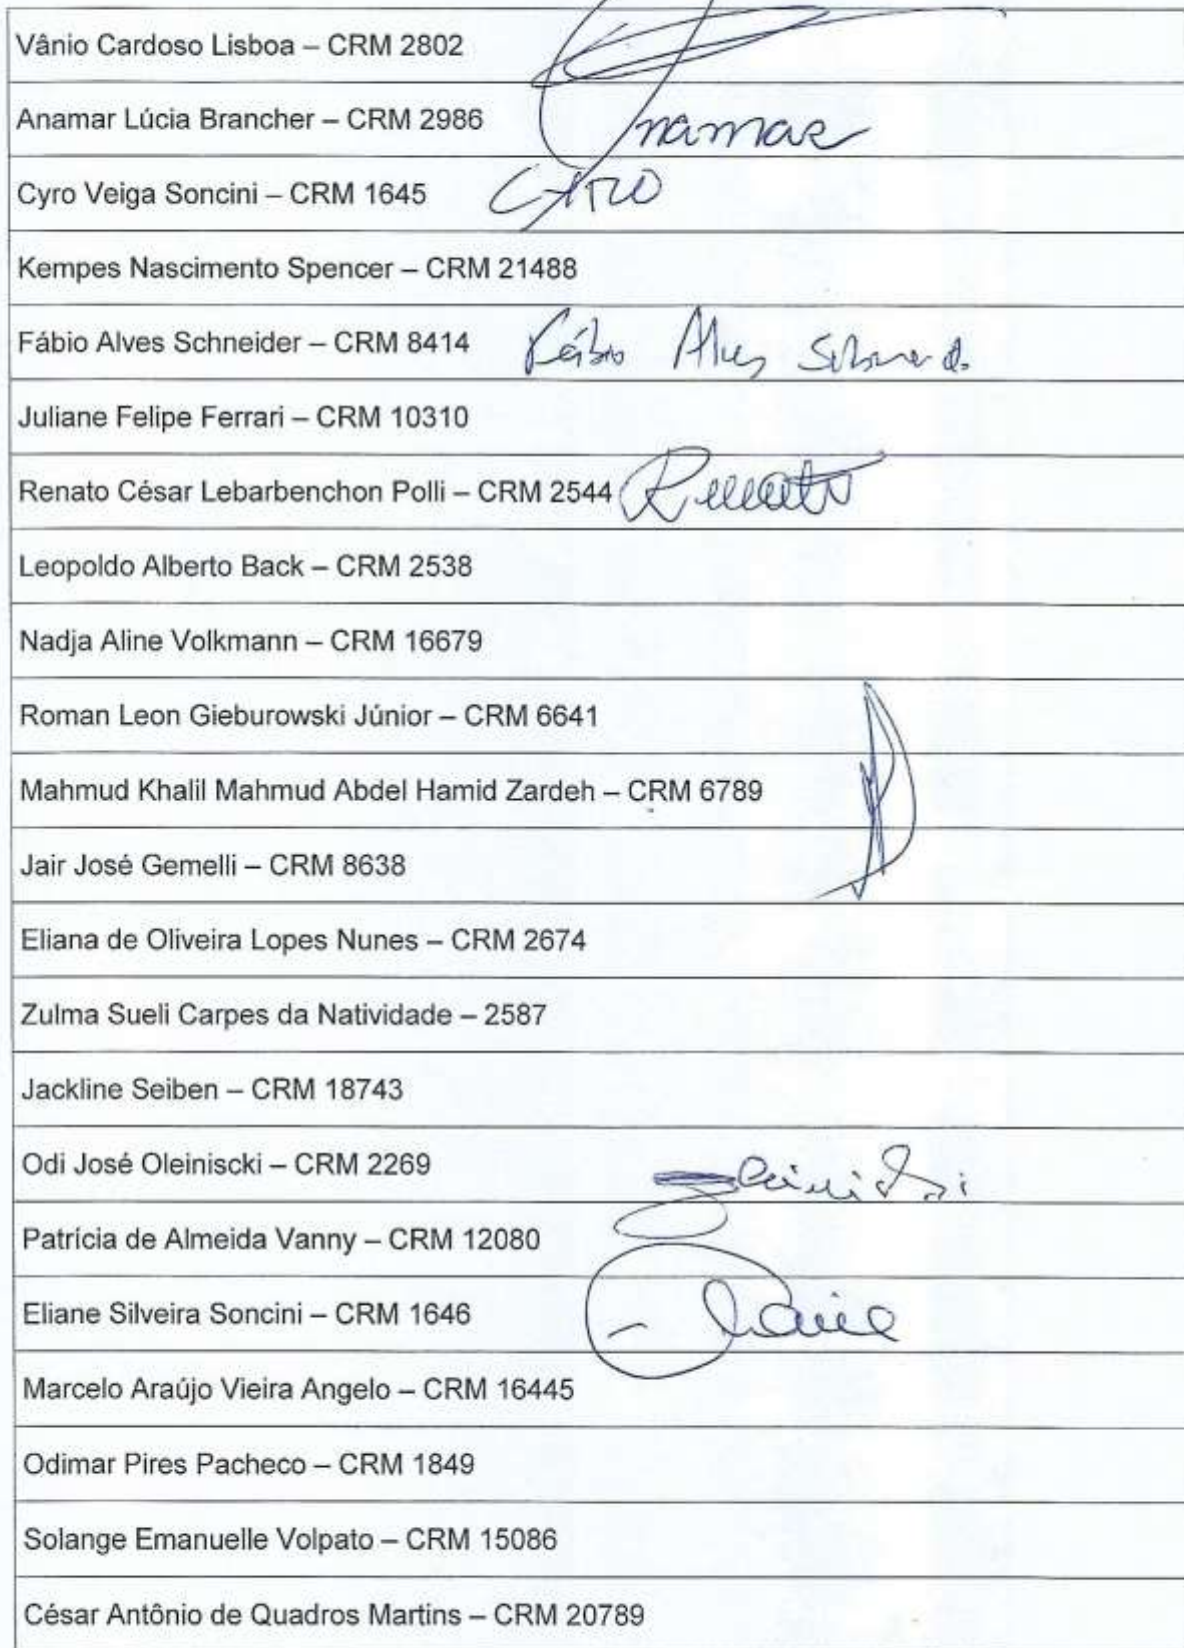 Vânio Cardoso Lisboa – CRM 2802
Anamar Lúcia Brancher – CRM 2986 Anamar
Cyro Veiga Soncini – CRM 1645 CYRO
Kempes Nascimento Spencer – CRM 21488
Fábio Alves Schneider – CRM 8414 Fábio Alves
Juliane Felipe Ferrari – CRM 10310
Renato César Lebarbenchon Polli – CRM 2544 Renato
Leopoldo Alberto Back – CRM 2538
Nadja Aline Volkmann – CRM 16679
Roman Leon Gieburowski Júnior – CRM 6641
Mahmud Khalil Mahmud Abdel Hamid Zardeh – CRM 6789
Jair José Gemelli – CRM 8638
Eliana de Oliveira Lopes Nunes – CRM 2674
Zulma Sueli Carpes da Natividade – 2587
Jackline Seiben – CRM 18743
Odi José Oleiniscki – CRM 2269
Patrícia de Almeida Vanny – CRM 12080
Eliane Silveira Soncini – CRM 1646
Marcelo Araújo Vieira Angelo – CRM 16445
Odimar Pires Pacheco – CRM 1849
Solange Emanuelle Volpato – CRM 15086
César Antônio de Quadros Martins – CRM 20789